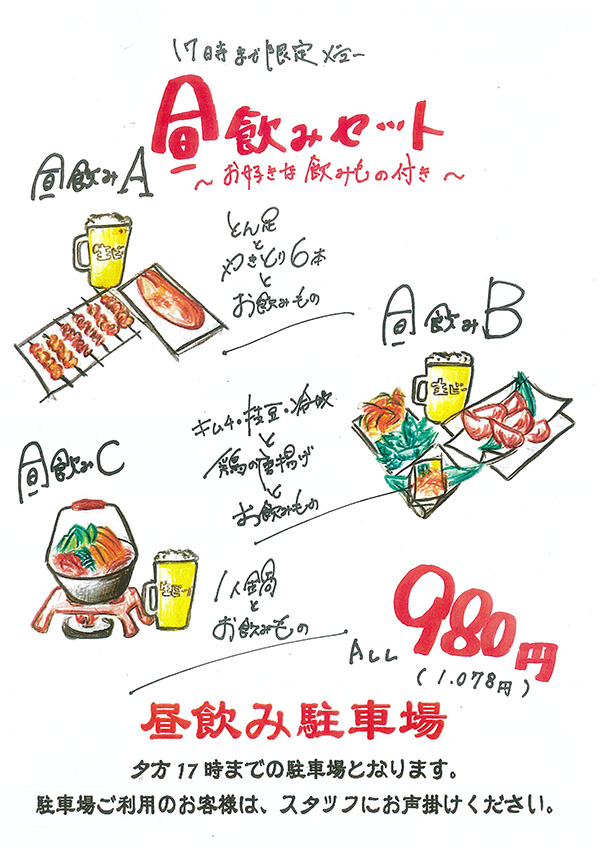 17時まで限定メニュー
昼飲みセット
～お好きな飲みもの付き～
昼飲みA
生ビー
とん足
と
やきとり6本
と
お飲みもの
昼飲みB
生ビー
キムチ・枝豆・冷奴
と
鶏の唐揚げ
と
お飲みもの
昼飲みC
生ビー
1人鍋
と
お飲みもの
ALL 980円
(1.078円)
昼飲み駐車場
夕方17時までの駐車場となります。
駐車場ご利用のお客様は、スタッフにお声掛けください。